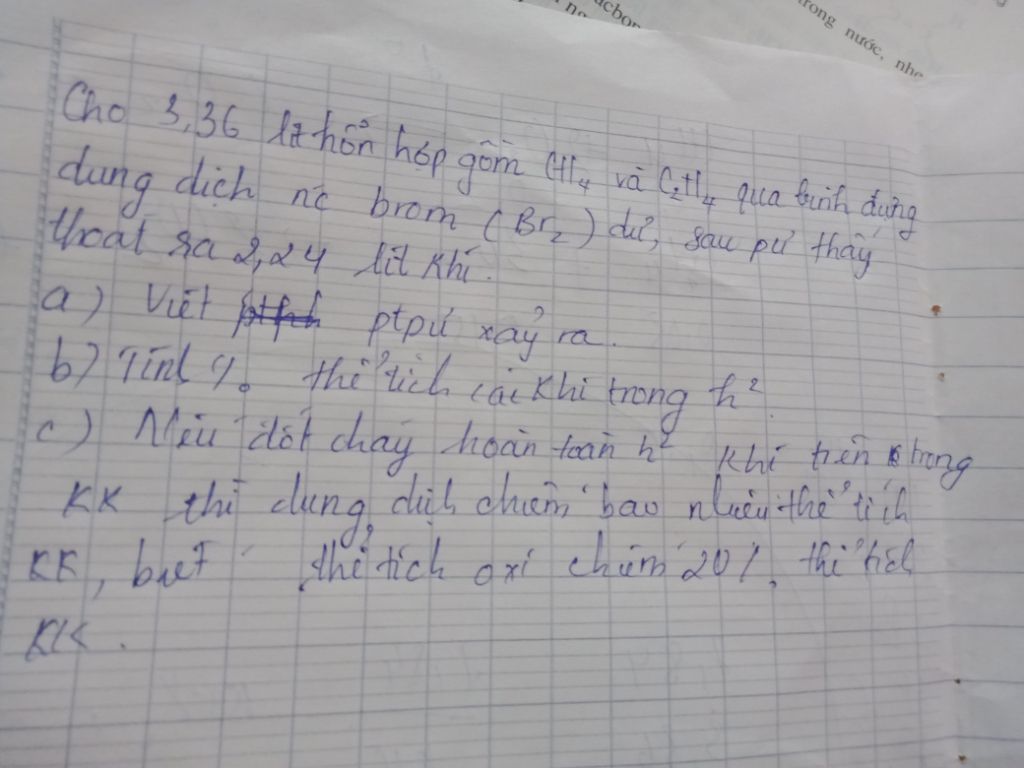 acbon
trong nước, nhẹ
Cho 3,36 lít hỗn hợp gồm CH₄ và C₂H₄ qua bình đựng
dung dịch nc brom (Br₂) dư, sau pứ thấy
thoát ra 2,24 lít khí.
a) Viết ptpứ xảy ra.
b) Tính % thể tích các khí trong h².
c) Nếu đốt cháy hoàn toàn h² khí trên trong
KK thì dung dịch chiếm bao nhiêu thể tích
KK, biết thể tích oxi chiếm 20%, thể tích
KK.